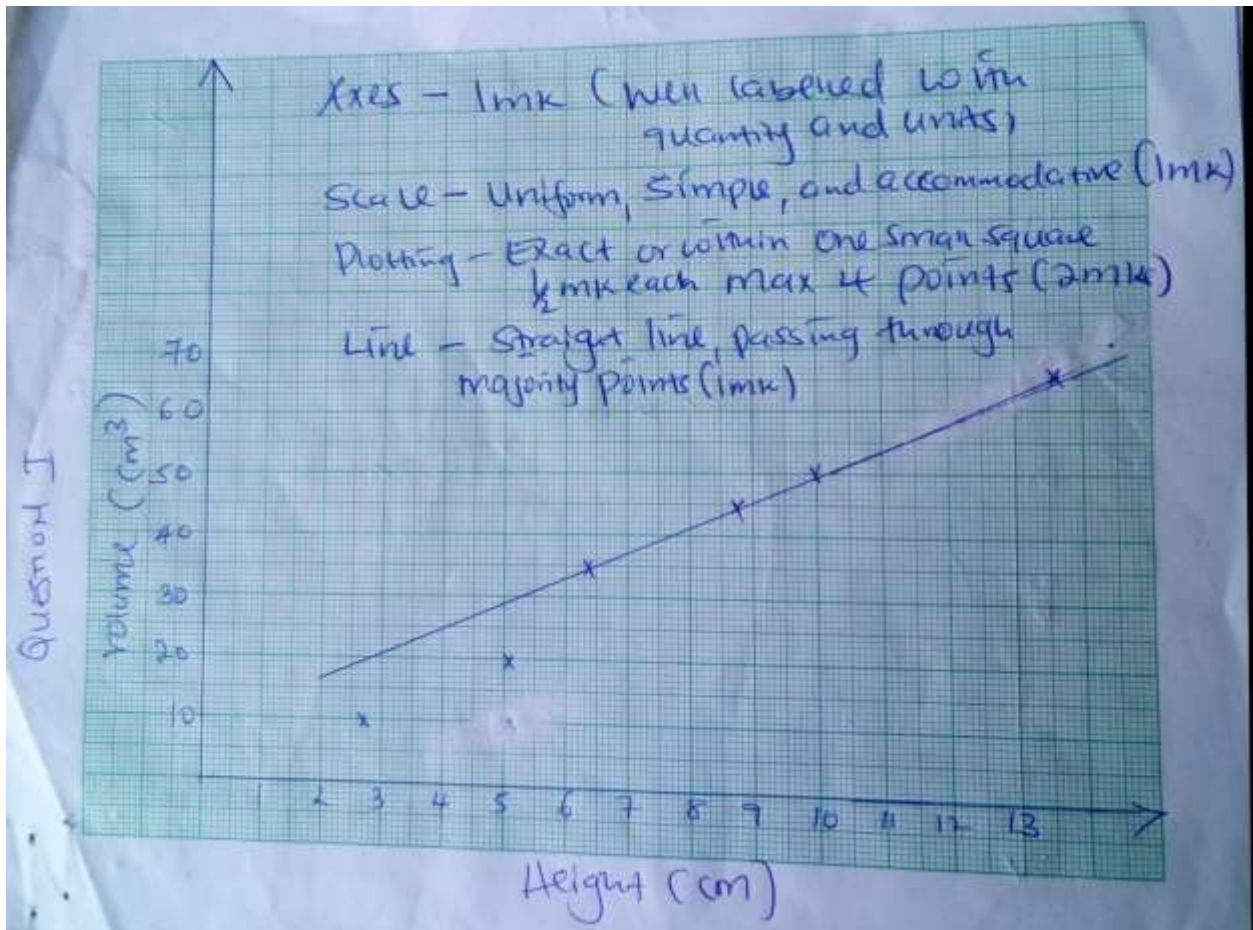 Axes - 1mk (Well labelled with
quantity and units)
Scale - Uniform, Simple, and accommodative (1mk)
Plotting - Exact or within one small square
½ mk each max 4 points (2mk)
Line - Straight line, passing through
majority points (1mk)
70
60
50
40
30
20
10
Volume (cm³)
QUESTION I
1 2 3 4 5 6 7 8 9 10 11 12 13
Height (cm)